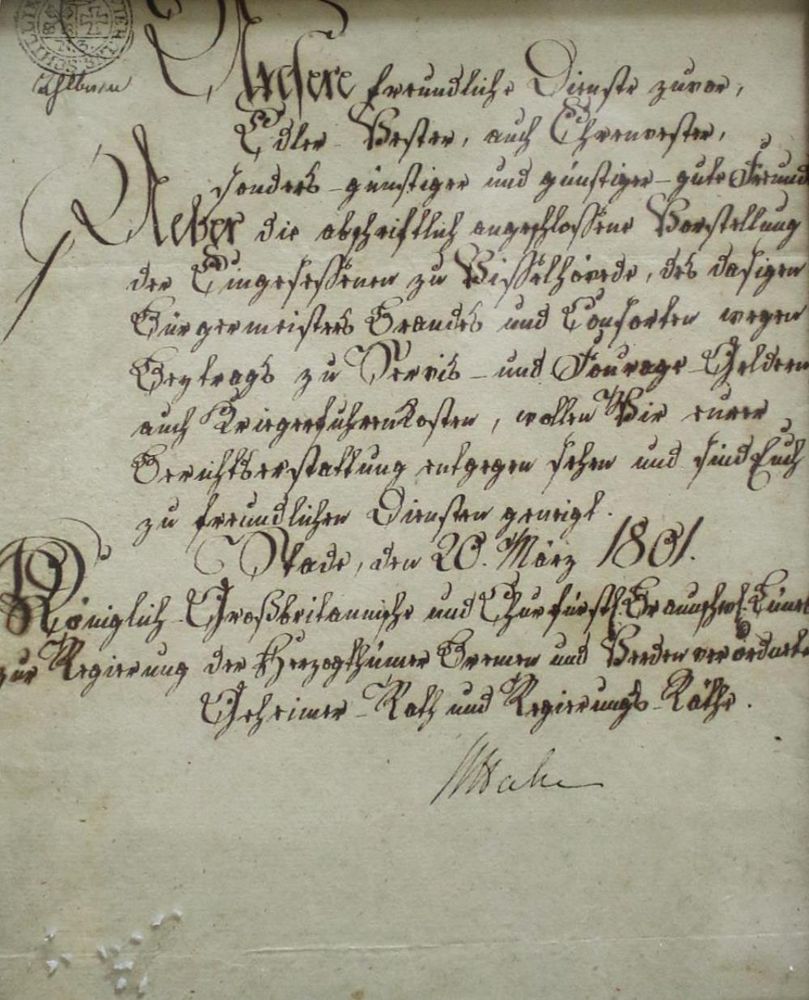 Unsere freundliche Dienste zuvor,
Edler Vester, auch Ehrenvester,
sonders günstiger und günstiger gute Freund
Ueber die abschriftlich angeschlossene Vorstellung
der Eingesessenen zu Visselhövede, des dasigen
Bürgermeisters Brandes und Consorten wegen
Beytrags zu Servis- und Fourage-Geldern
auch Kriegerfuhrenkosten, wollen Wir eurer
Berichtserstattung entgegen sehen und sind Euch
zu freundlichen Diensten geneigt.
Stade, den 20. März 1801.
Königlich-Großbritannische und Churfürstl. Braunschw. Lüneb
zur Regierung der Herzogthümer Bremen und Verden verordnete
Geheimer-Rath und Regierungs-Räthe.